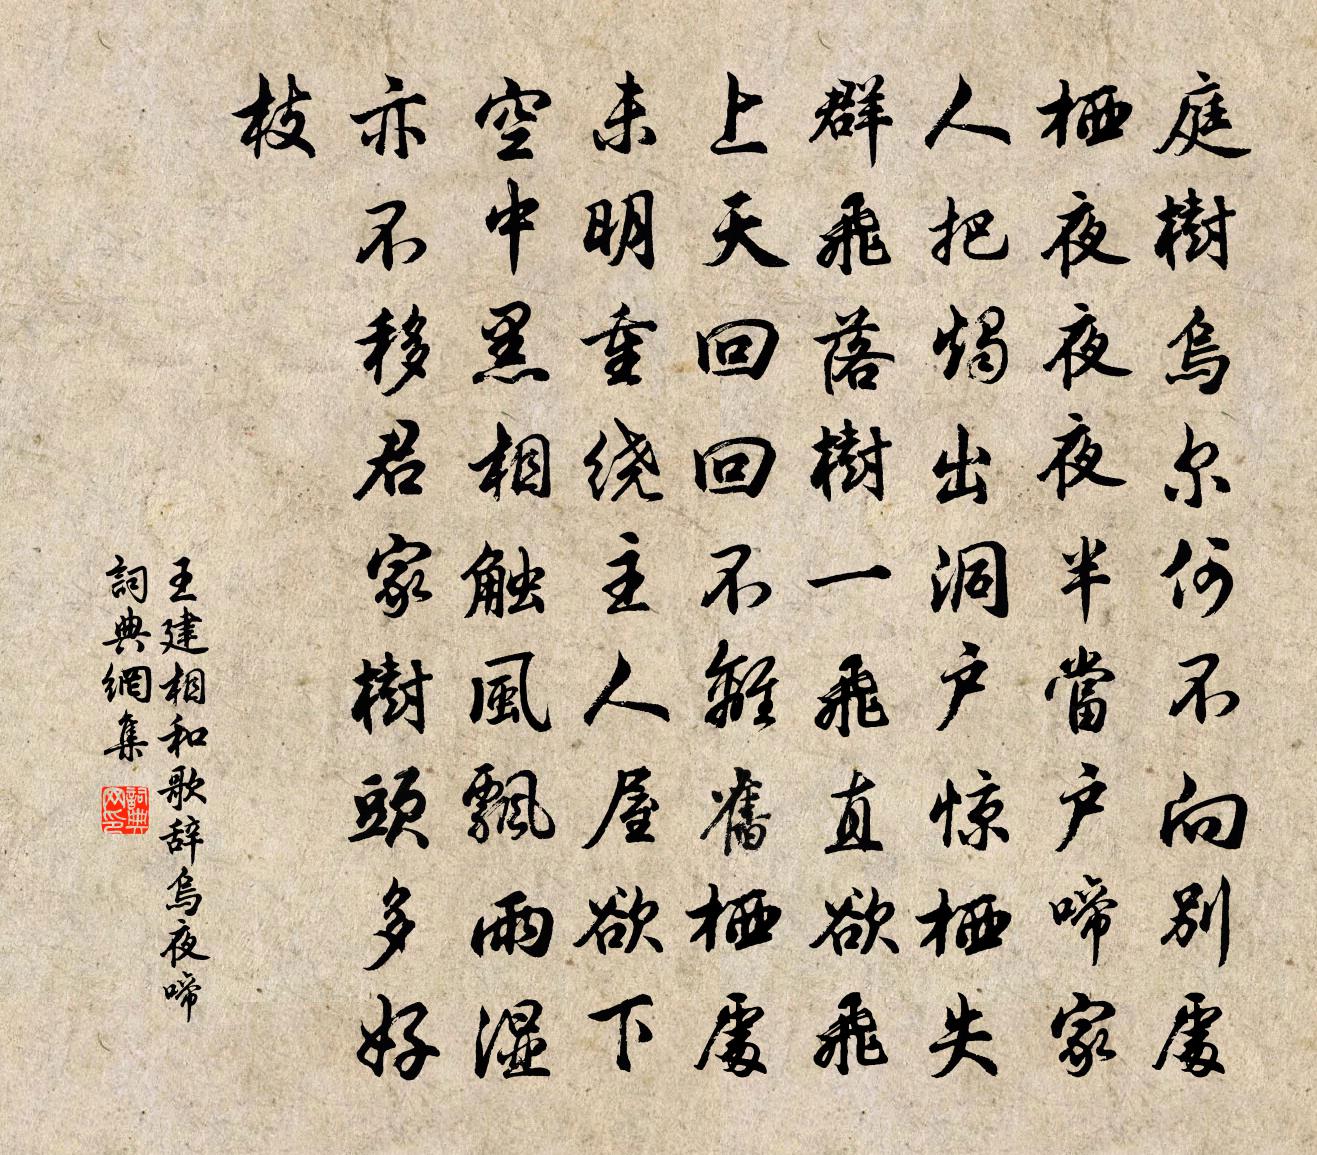 庭樹烏尔何不向別處
栖夜夜夜半當户啼家
人把燭出洞户惊栖失
群飛落樹一飛直欲飛
上天回回不離舊栖處
未明重绕主人屋欲下
空中黑相触風飄雨湿
亦不移君家樹頭多好
枝
王建相和歌辞烏夜啼
詞典網集
詞典网印